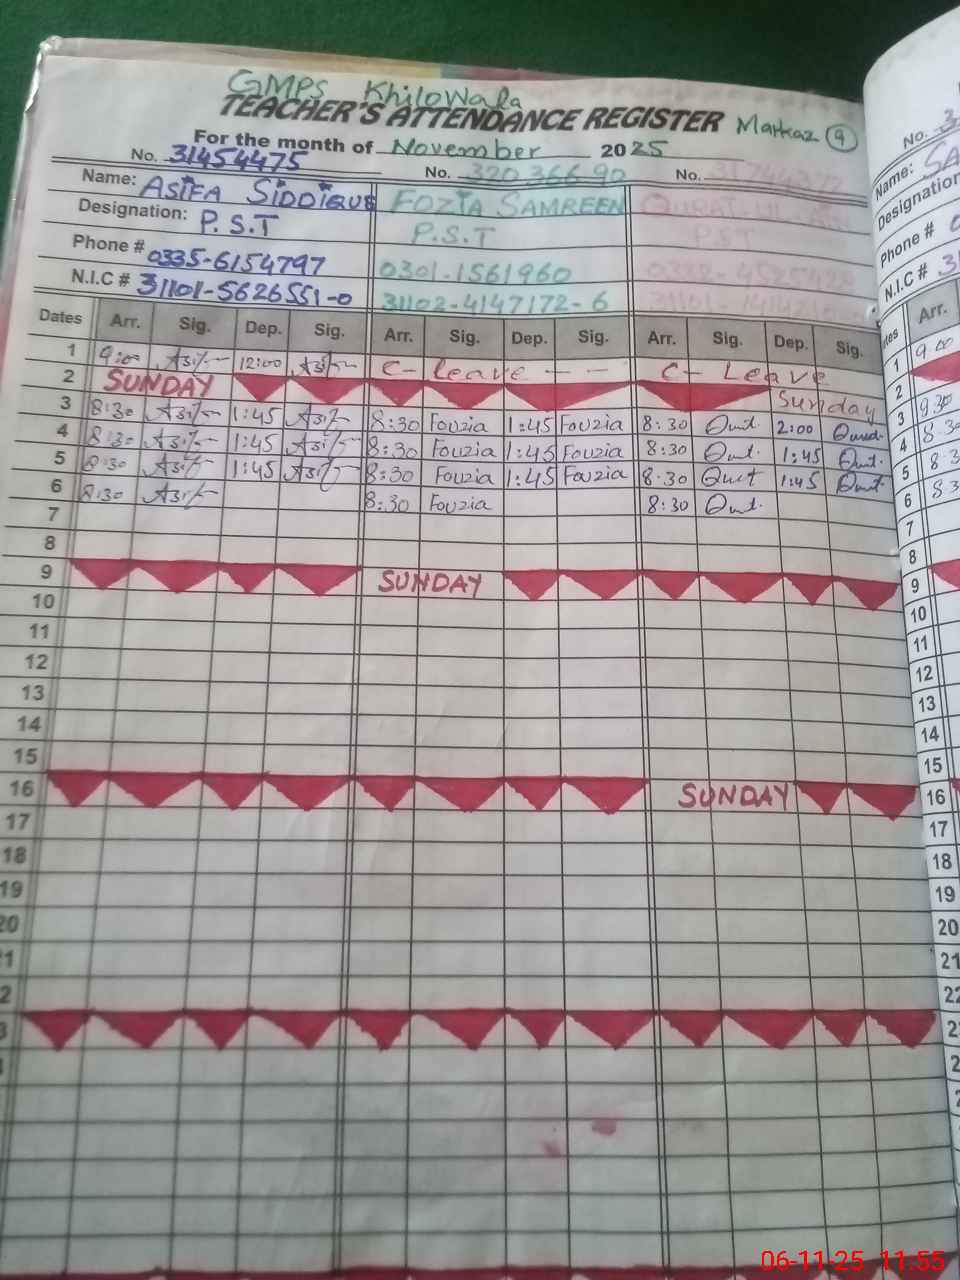 GMPS KhiloWala
TEACHER'S ATTENDANCE REGISTER Markaz 9
For the month of November 2025
No. 31454475 No. 32036690 No.
Name: ASIFA SIDDIQUE FOZIA SAMREEN
Designation: P.S.T P.S.T P.S.T
Phone # 0335-6154797 0301-1561960
N.I.C # 31101-5626551-0 31102-4147172-6
Dates Arr. Sig. Dep. Sig. Arr. Sig. Dep. Sig. Arr. Sig. Dep. Sig.
1 9:00 12:00 C- leave - - C- Leave
2 SUNDAY Sunday
3 8:30 1:45 8:30 Fouzia 1:45 Fouzia 8:30 2:00
4 8:30 1:45 8:30 Fouzia 1:45 Fouzia 8:30 1:45
5 8:30 1:45 8:30 Fouzia 1:45 Fouzia 8:30 1:45
6 8:30 8:30 Fouzia 8:30
7
8
9 SUNDAY
10
11
12
13
14
15
16 SUNDAY
17
18
19
20
No. 3
Name: SA
Designation
Phone #
N.I.C # 3
Arr.
1 9:00
2
3 9:30
4 8:3
5 8:3
6 8:3
7
8
9
10
11
12
13
14
15
16
17
18
19
20
21
22
06-11-25 11:55